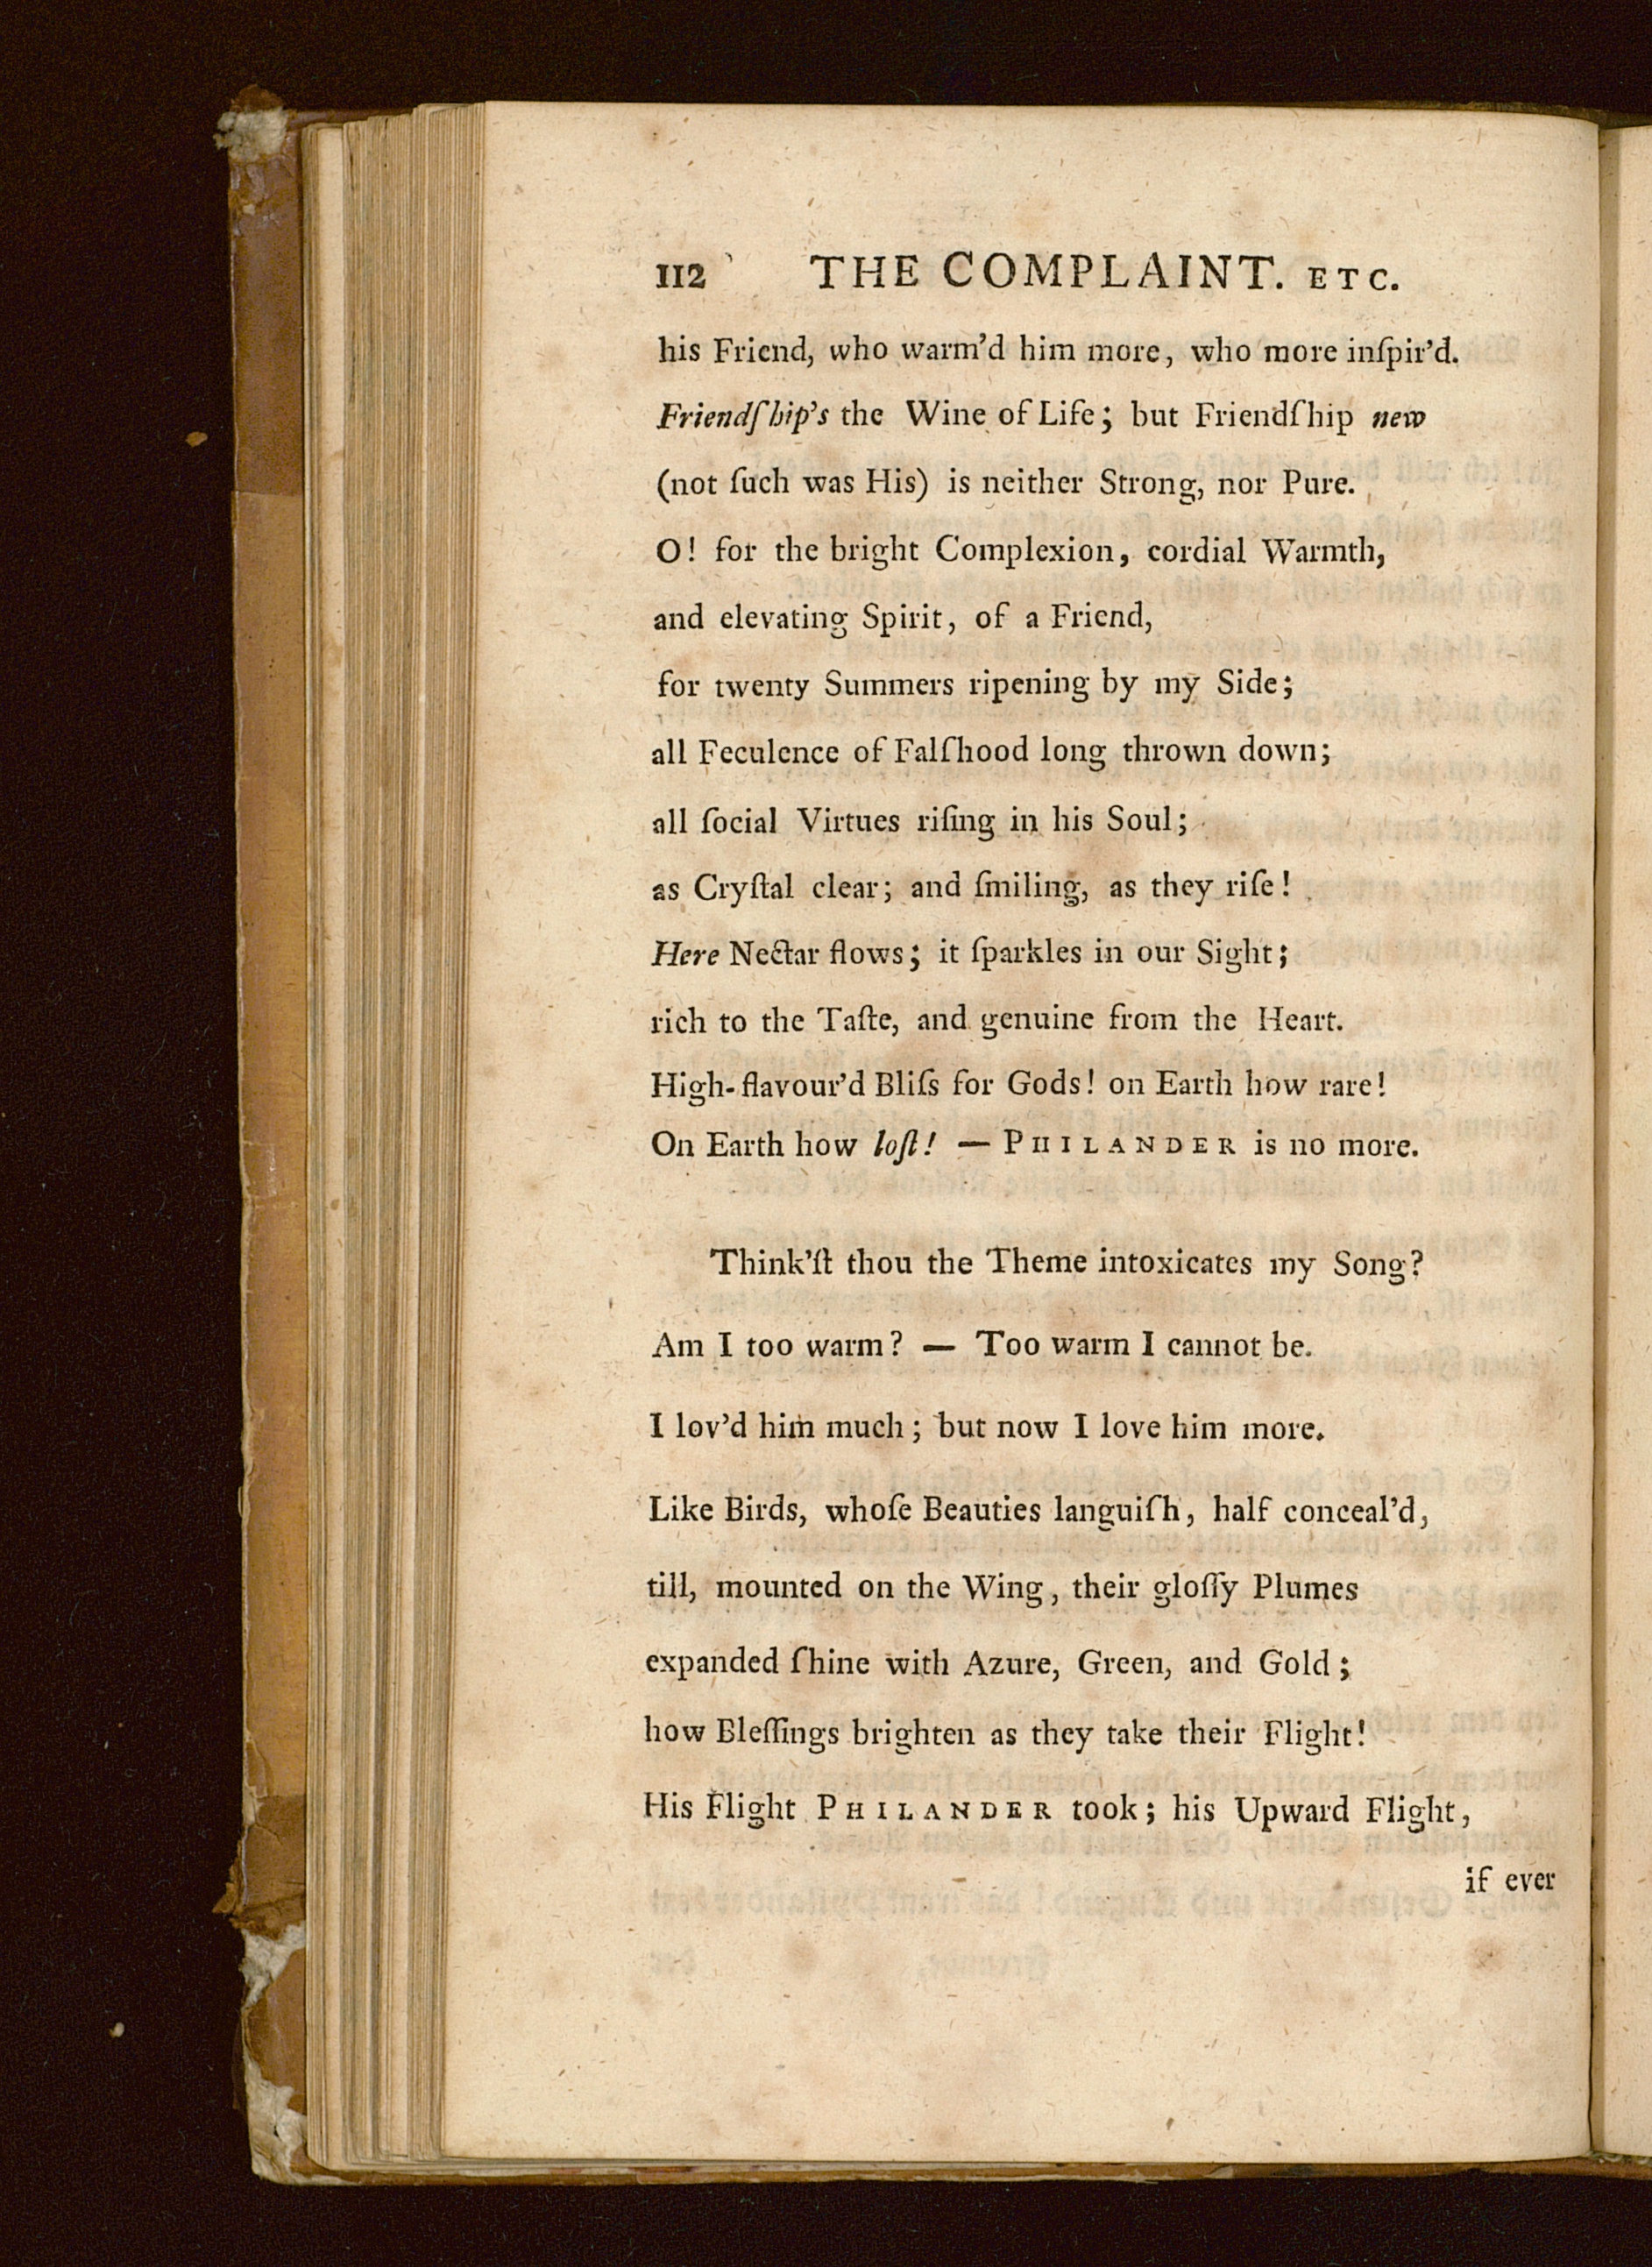 112 THE COMPLAINT. ETC.
his Friend, who warm'd him more, who more inſpir'd.
Friendſhip's the Wine of Life; but Friendſhip new
(not ſuch was His) is neither Strong, nor Pure.
O! for the bright Complexion, cordial Warmth,
and elevating Spirit, of a Friend,
for twenty Summers ripening by my Side;
all Feculence of Falſhood long thrown down;
all ſocial Virtues riſing in his Soul;
as Cryſtal clear; and ſmiling, as they riſe!
Here Nectar flows; it ſparkles in our Sight;
rich to the Taſte, and genuine from the Heart.
High-flavour'd Bliſs for Gods! on Earth how rare!
On Earth how loſt! — PHILANDER is no more.
Think'ſt thou the Theme intoxicates my Song?
Am I too warm? — Too warm I cannot be.
I lov'd him much; but now I love him more.
Like Birds, whoſe Beauties languiſh, half conceal'd,
till, mounted on the Wing, their gloſſy Plumes
expanded ſhine with Azure, Green, and Gold;
how Bleſſings brighten as they take their Flight!
His Flight PHILANDER took; his Upward Flight,
if ever